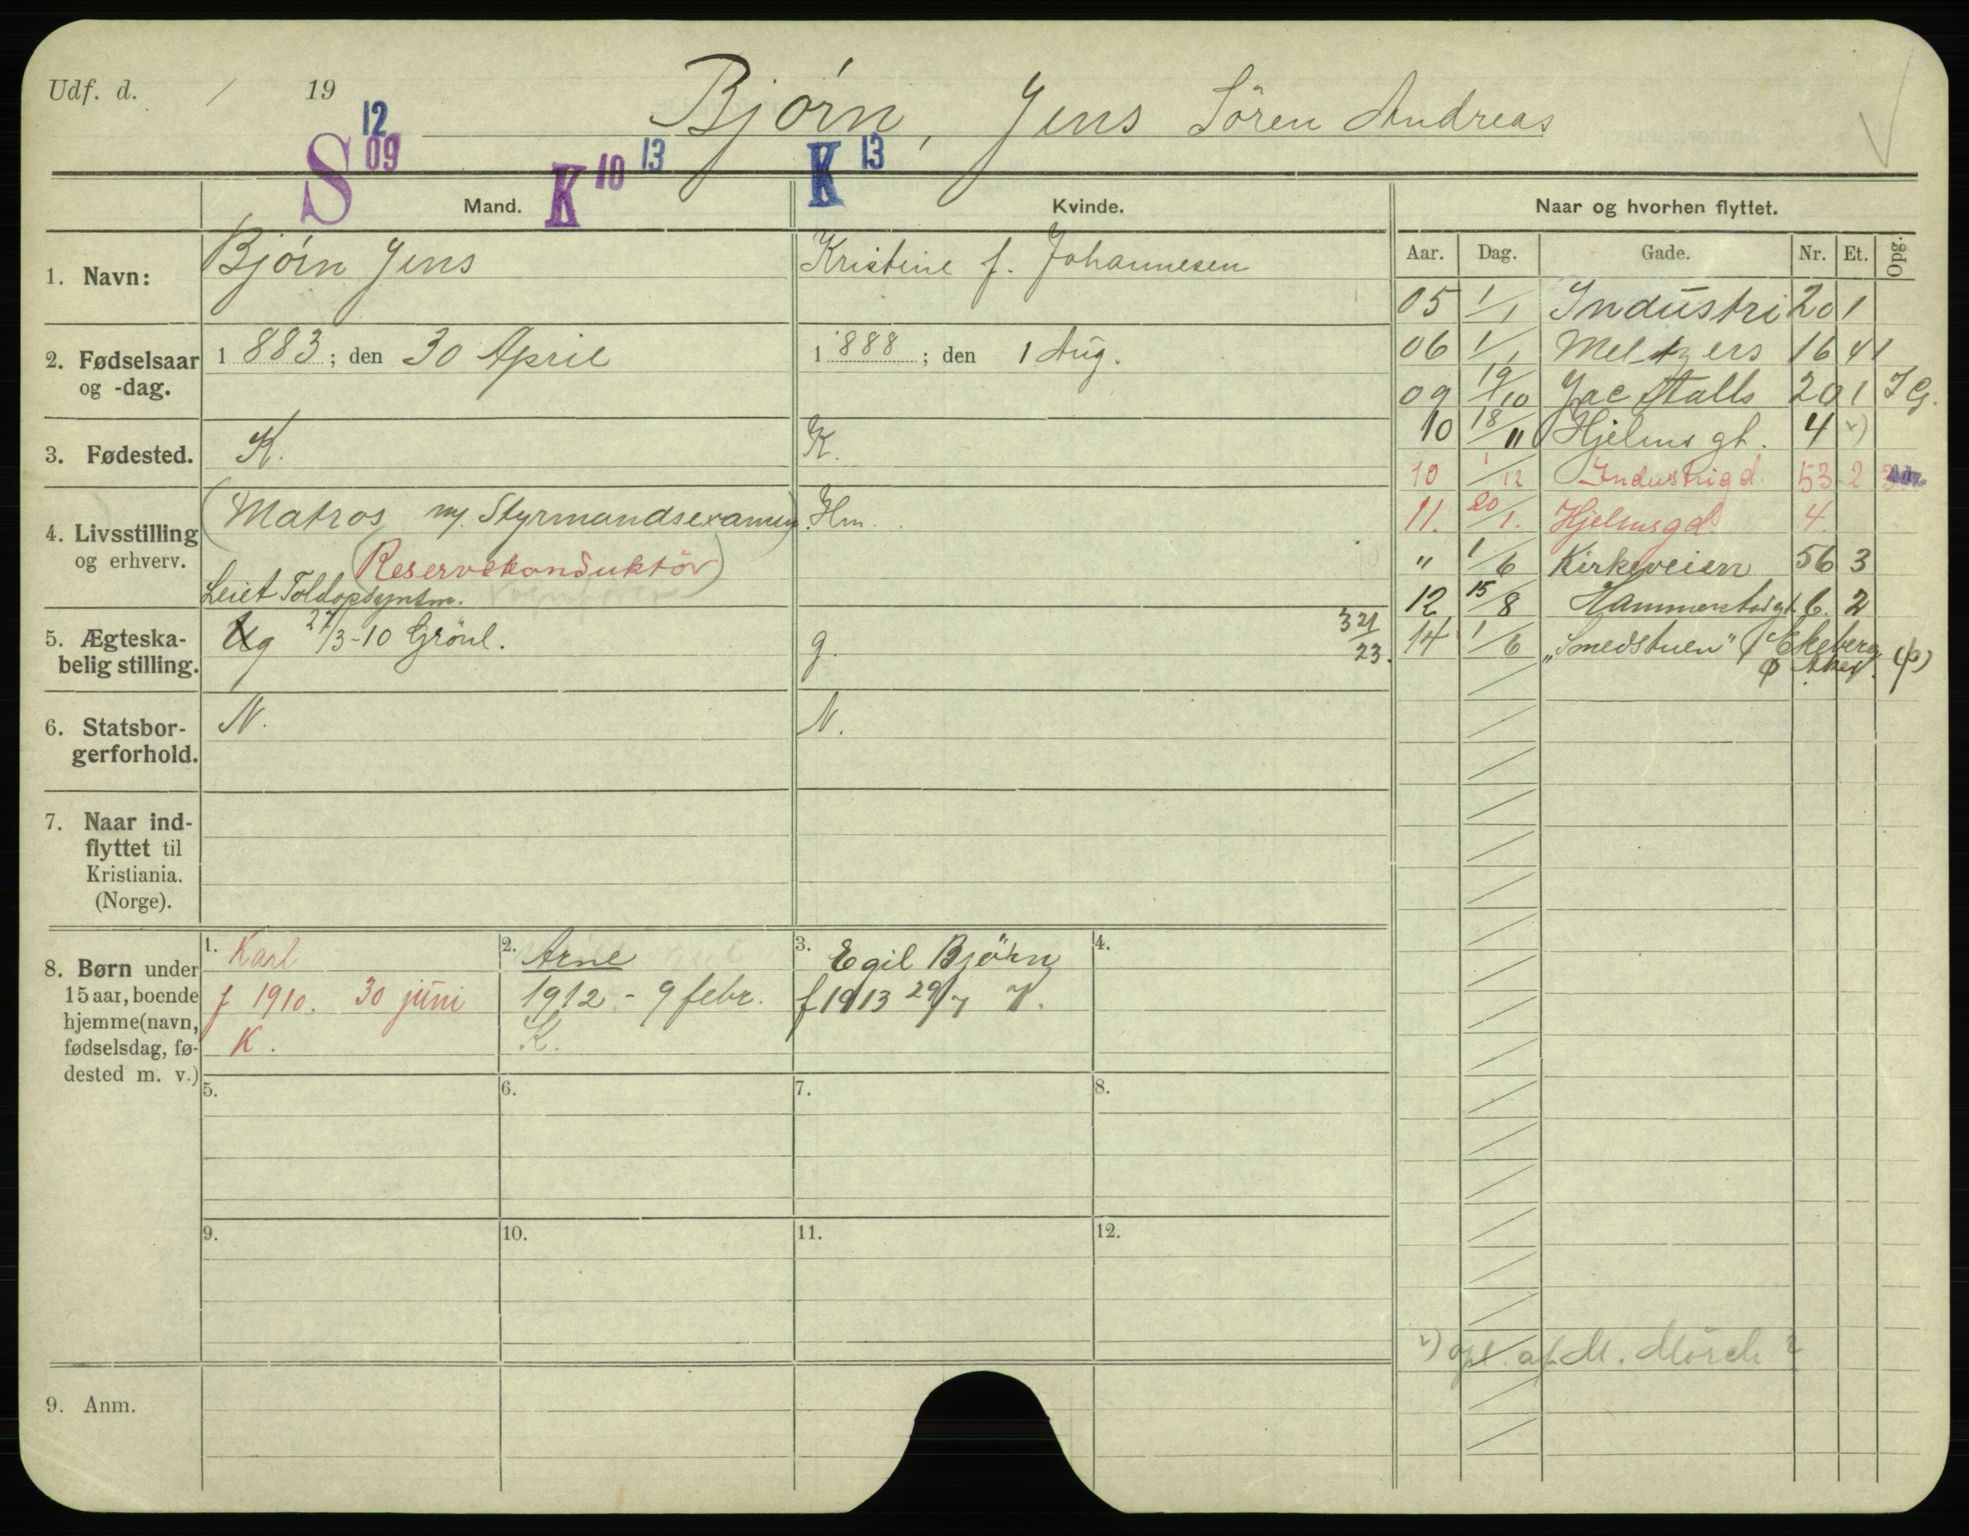 Udf. d. / 19
Bjørn, Jens Sören Andreas
S 12 09
K 10 13
K 13
Mand.
Kvinde.
Naar og hvorhen flyttet.
1. Navn:
Bjørn Jens
Kristine f. Johannesen
2. Fødselsaar og -dag.
1 883; den 30 April
1 888; den 1 Aug.
3. Fødested.
K.
K.
4. Livsstilling og erhverv.
(Matros m/ Styrmandsexamen)
Hm.
(Reservekonduktör)
Leiet Toldopsynsm.
5. Ægteskabelig stilling.
Ug 27/3-10 Grönl.
g.
3 21/23.
6. Statsborgerforhold.
N.
N.
7. Naar indflyttet til Kristiania. (Norge).
8. Børn under 15 aar, boende hjemme (navn, fødselsdag, fødested m. v.)
1. Karl
f 1910. 30 juni
K.
2. Arne
1912 - 9 febr.
K.
3. Egil Björn
f 1913 29/7
4.
5.
6.
7.
8.
9.
10.
11.
12.
9. Anm.
Aar. Dag. Gade. Nr. Et. Opg.
05 1/1 Industri 20 1
06 1/1 Meltzers 16 4
09 19/10 Jac Aalls 20 1 I G.
10 18/11 Hjelms gt. 4 v)
10 1/12 Industrigd. 53 2
11. 20/1. Hjelmsgd. 4.
" 1/6 Kirkeveien 56 3
12 15/8 Hammerstadgt. 6. 2
14 1/6 "Smedstuen" Ekeberg
Aker
v) opl. af M. Mörch